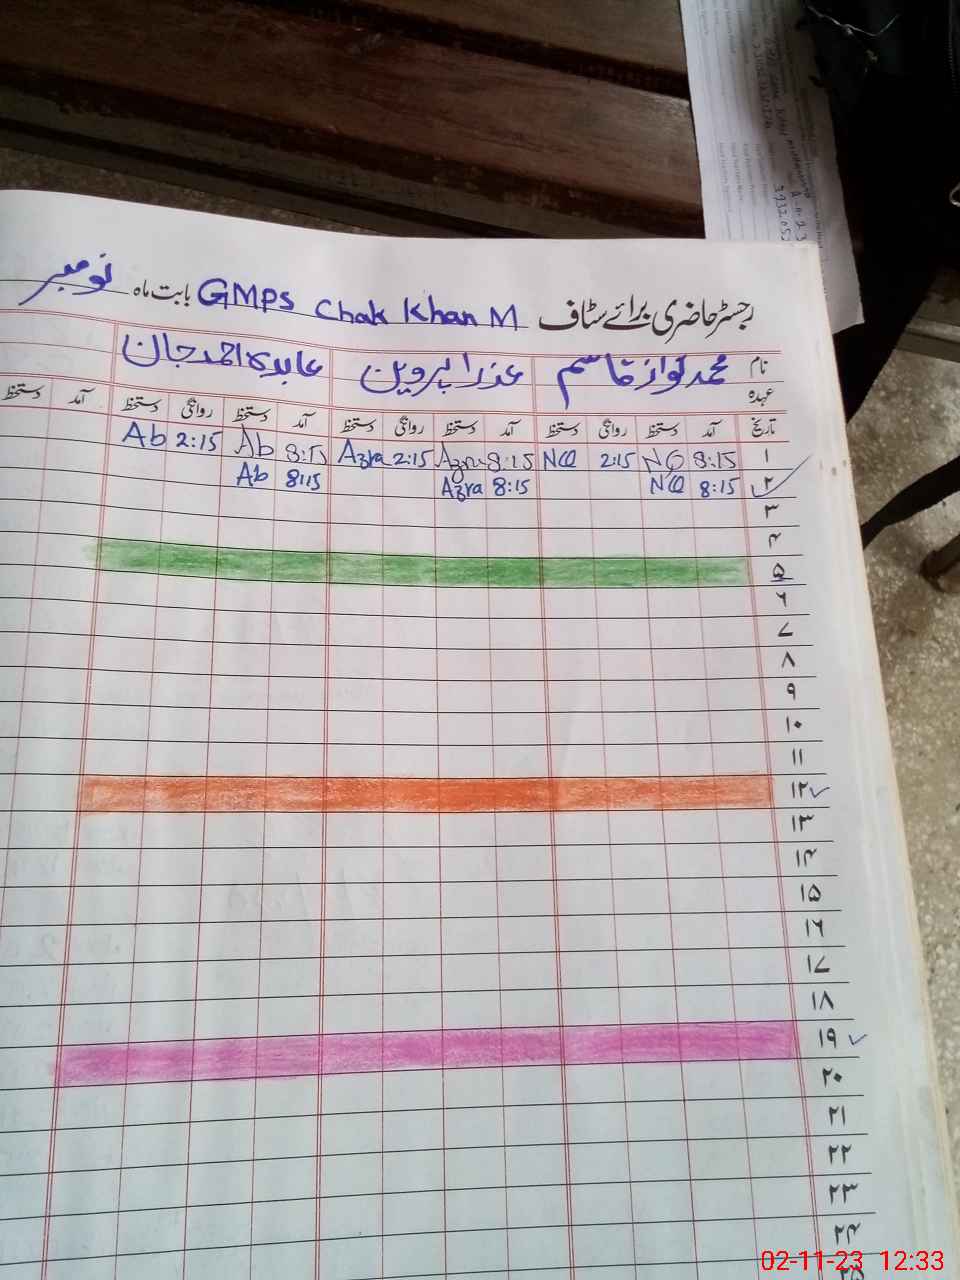 رجسٹر حاضری برائے سٹاف GMPS Chak Khan M بابت ماہ نومبر
نام محمد نواز قاسم عذرا پروین عابدہ احمد جان
عہدہ
تاریخ آمد دستخط روانگی دستخط آمد دستخط روانگی دستخط آمد دستخط روانگی دستخط آمد دستخط
۱ 8:15 NQ 2:15 NQ 8:15 Azra 2:15 Azra 8:15 Ab 2:15 Ab
۲ 8:15 NQ 8:15 Azra 8:15 Ab
۳
۴
۵
۶
۷
۸
۹
۱۰
۱۱
۱۲
۱۳
۱۴
۱۵
۱۶
۱۷
۱۸
۱۹
۲۰
۲۱
۲۲
۲۳
۲۴
۲۵
02-11-23 12:33